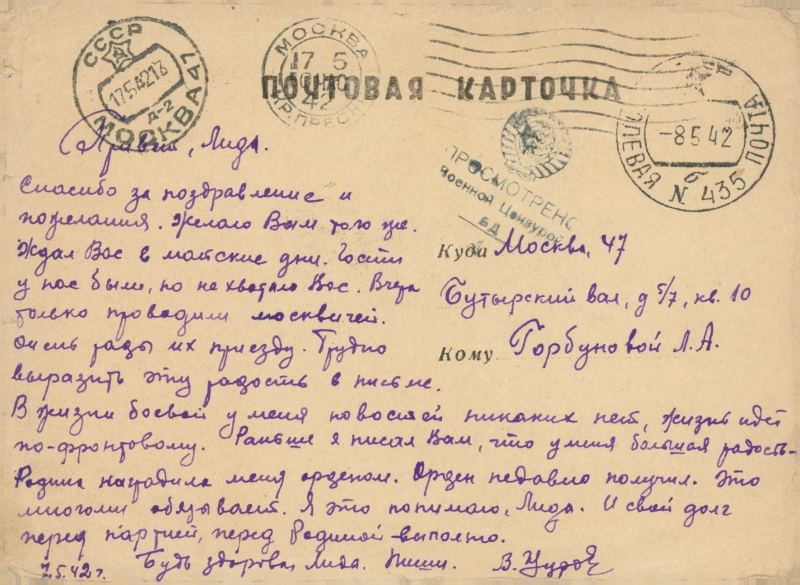 СССР
17.5.42.13
Д-2
МОСКВА 47
МОСКВА
17 5
42
КР.ПРЕСН
ПОЧТОВАЯ КАРТОЧКА
ПОЛЕВАЯ ПОЧТА
-8.5.42
б
N 435
ПРОСМОТРЕНО
Военной Цензурой
БД
Куда Москва, 47
Бутырский вал, д 5/7, кв. 10
Кому Горбуновой Л.А.
Лида.
Спасибо за поздравление и
пожелания. Желаю Вам того же.
Ждал Вас в майские дни. Гости
у нас были, но не хватало Вас. Вчера
только проводили москвичей.
Очень рады их приезду. Трудно
выразить эту радость в письме.
В жизни боевой у меня новостей никаких нет, жизнь идет
по-фронтовому. Раньше я писал Вам, что у меня большая радость-
Родина наградила меня орденом. Орден недавно получил. Это
многим обязывает. Я это понимаю, Лида. И свой долг
перед партией, перед Родиной выполню.
7.5.42 г. Будь здорова, Лида. Пиши. В.